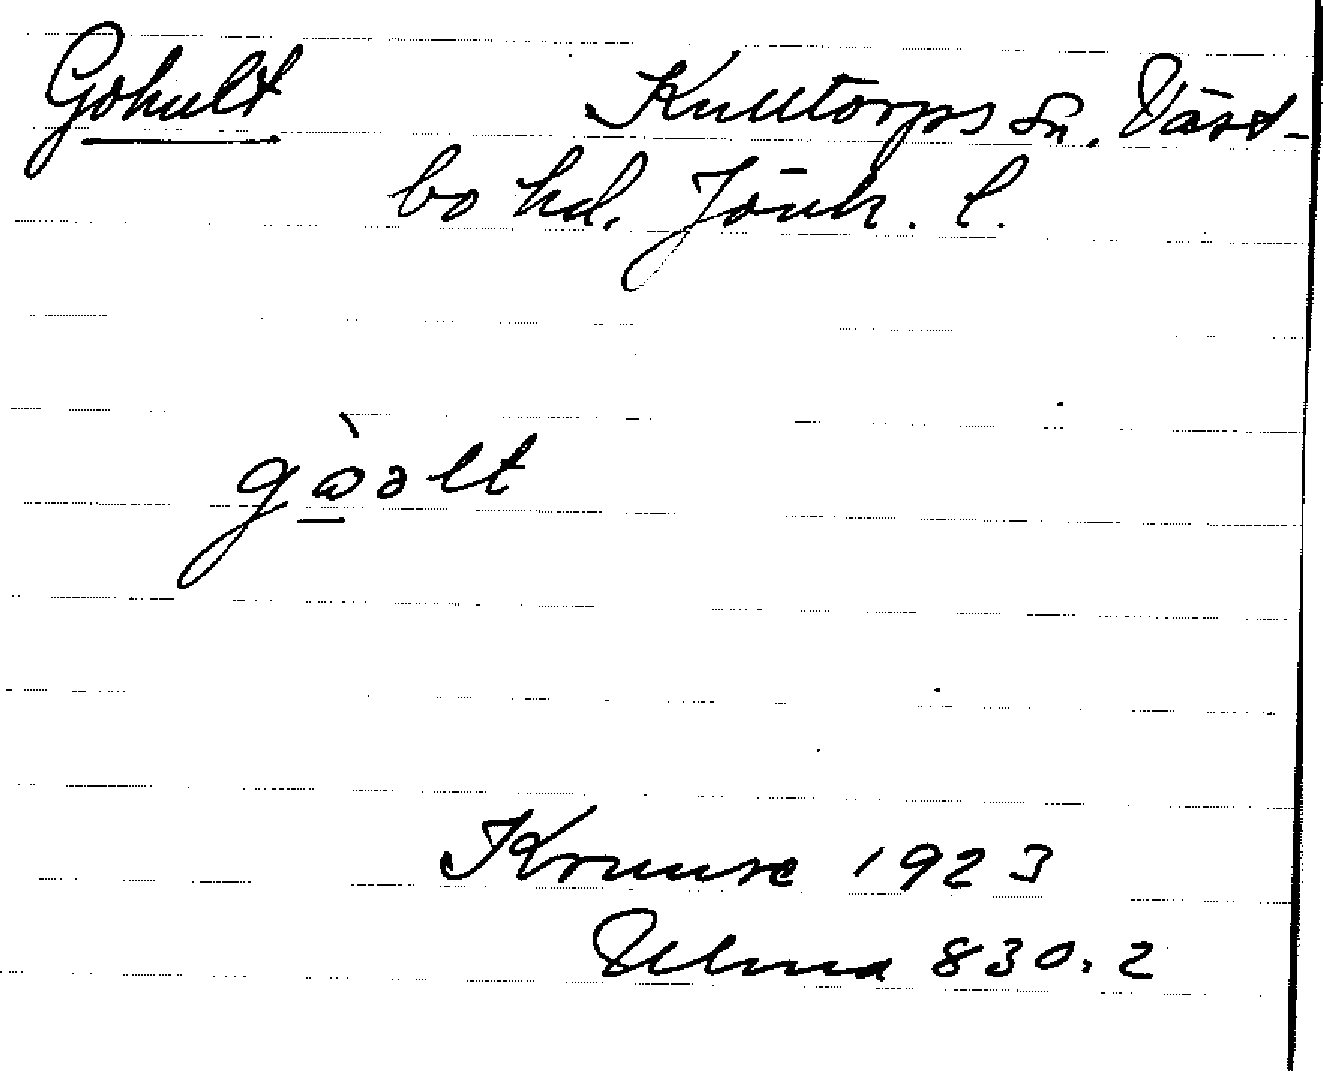 Gohult Kulltorps sn. Väst-
bo hd. Jönk. l.
gòəlt
Kruuse 1923
Ulma 830:2